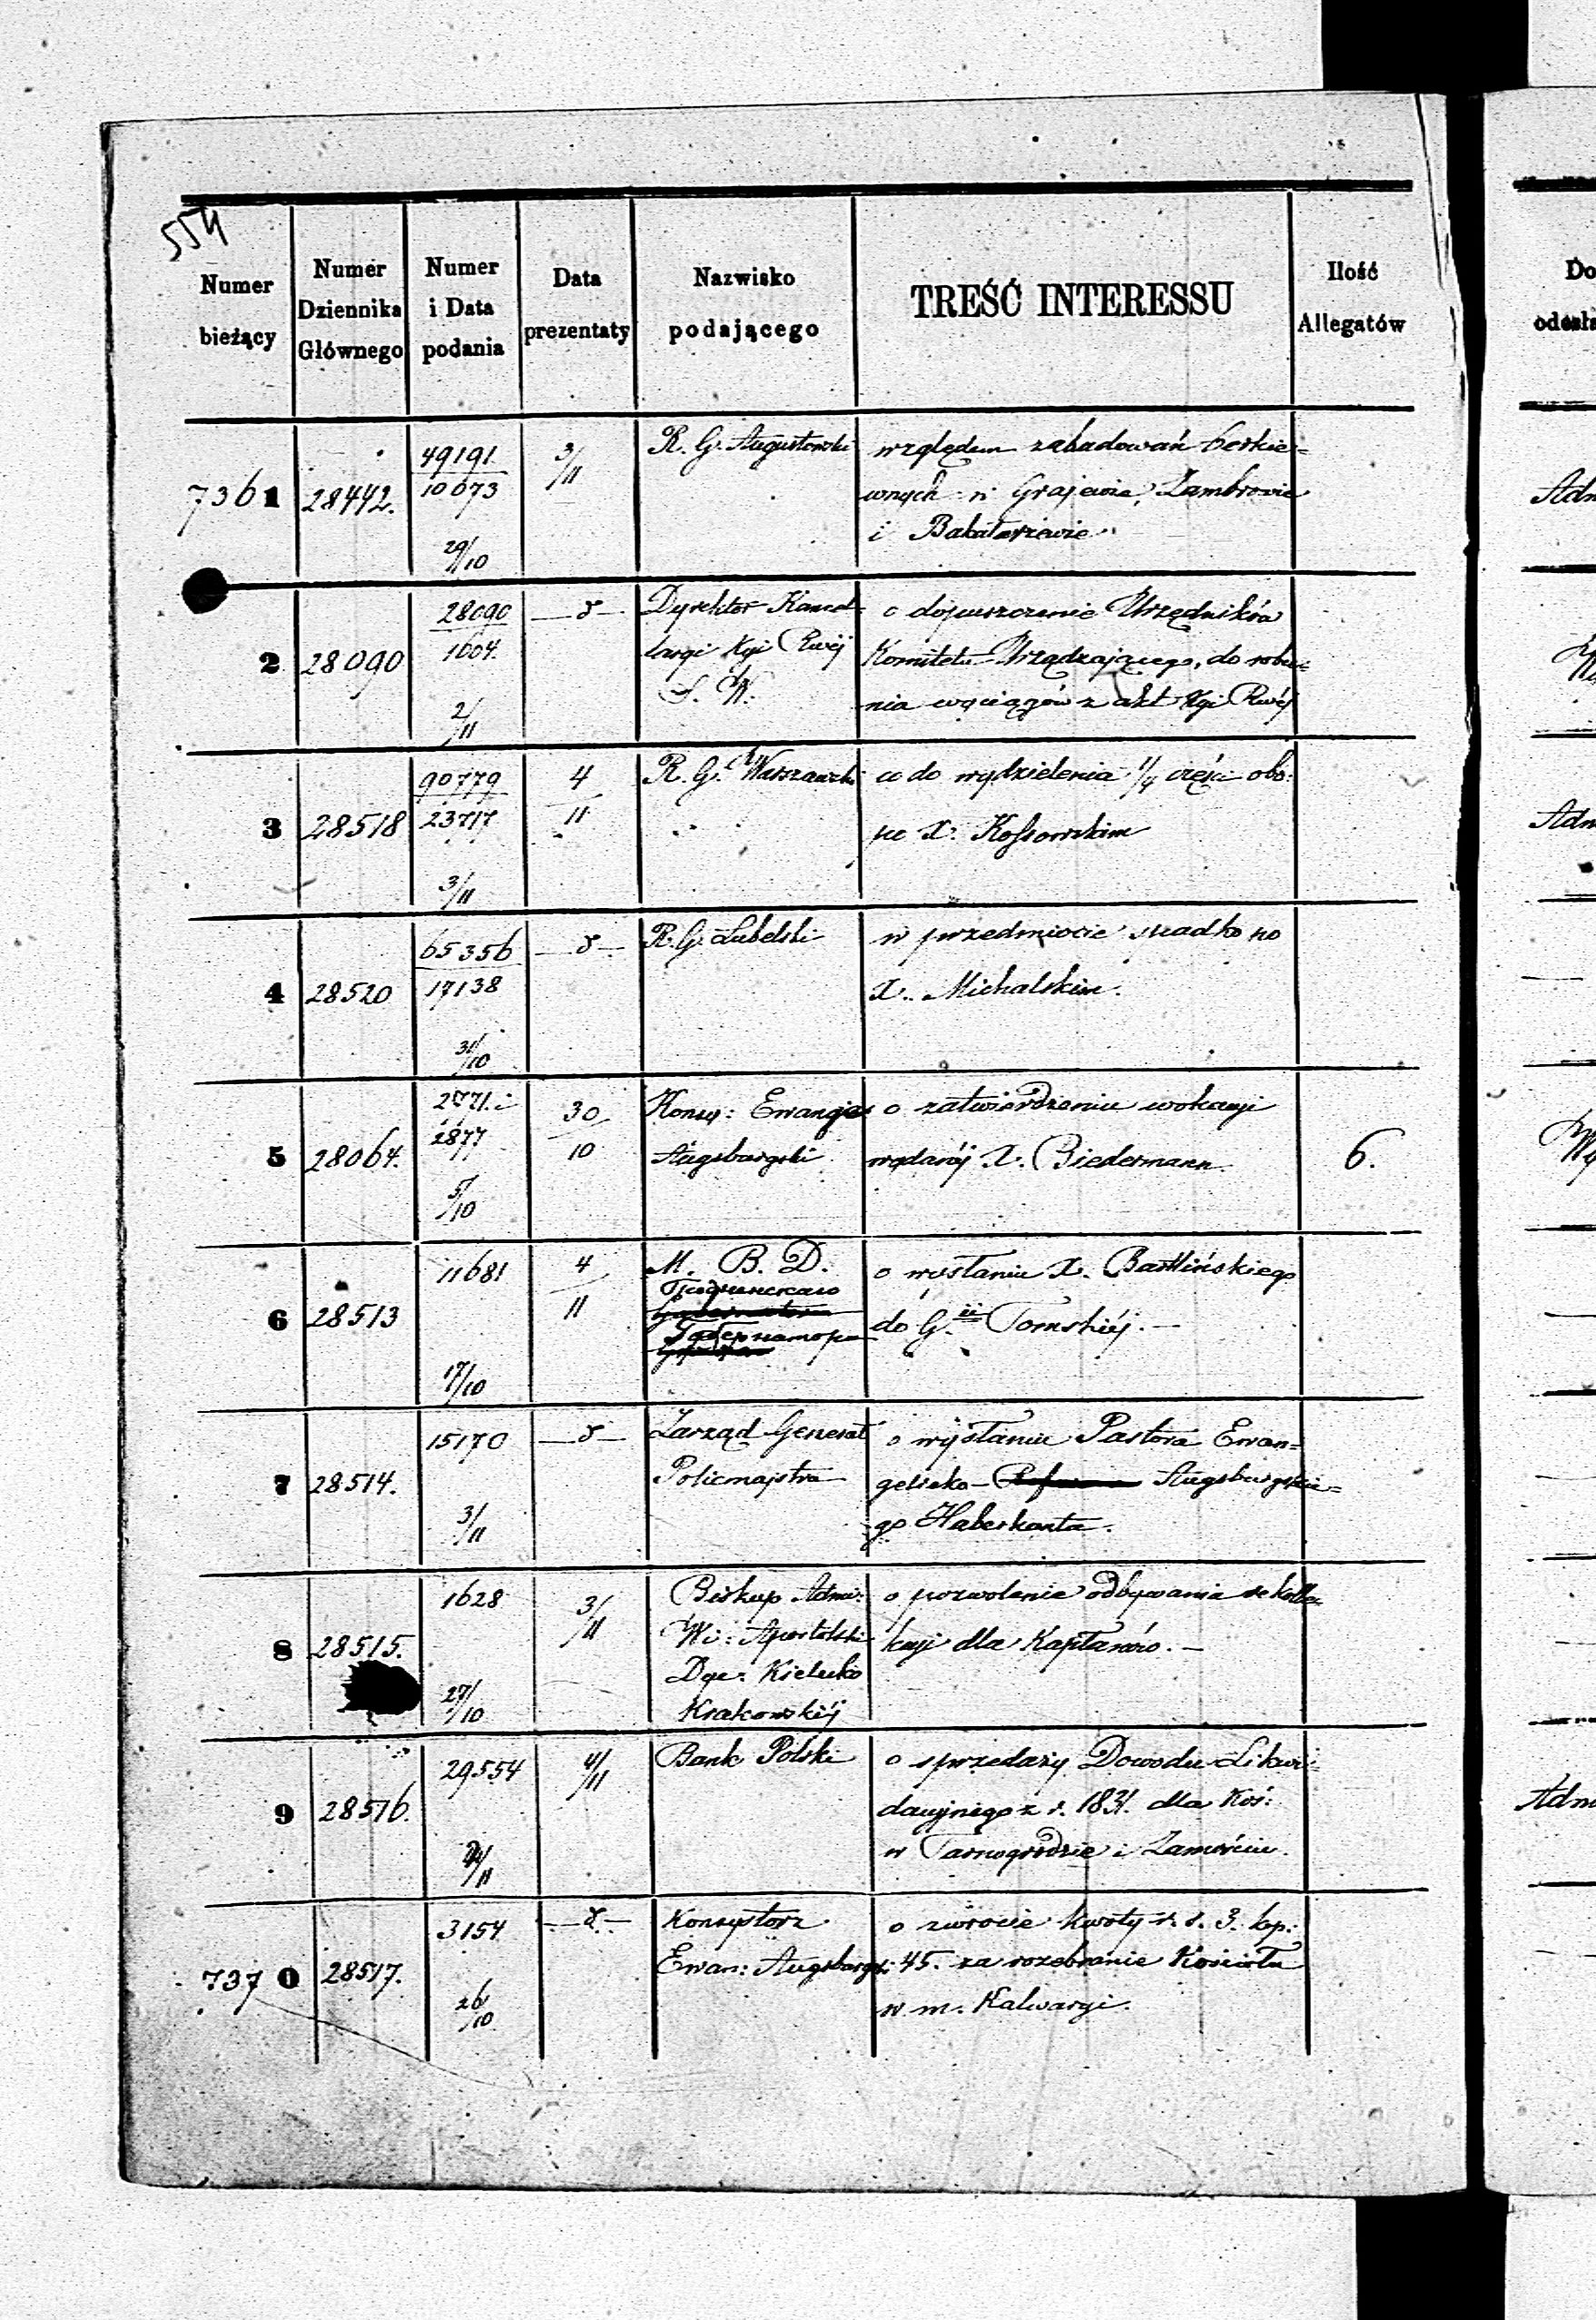 554
Numer bieżący
Numer Dziennika Głównego
Numer i Data podania
Data prezentaty
Nazwisko podającego
TREŚĆ INTERESSU
Ilość Allegatów
7361
28442.
49191.
10673
29/10
3/11
R. G. Augustowski
względem zabudowań
w Grajewie, Zambrowie
i Bakałarzewie
2
28090
28090
1604.
2/11
Dyrektor Kancel=
laryi Kyi Rwéj
S. W.
o dopuszczenie Urzędników
Komitetu Urządzającego, do robie=
nia wyciągów z akt Kyi Rwéj
3
28518
90779
23717
3/11
4/11
R. G. Warszawski
co do wydzielenia 1/4 części
po X. Kossowskim
4
28520
65356
17138
31/10
R. G. Lubelski
w przedmiocie spadku po
X. Michalskim.
5
28064.
2771. i
2877
5/10
30/10
Konsy: Ewangie
Augsburgski
o zatwierdzenie wokacyi
wydanéj X. Biedermann
6.
6
28513
11681
17/10
4/11
M. B. D.
Гродненскаго
Губернатора
o wysłaniu X.
do G.ii Tomskiéj.—
7
28514.
15170
3/11
Zarząd Generał
Policmajstra
o wysłaniu Pastora Ewan=
gelicko— Augsburgskie=
go Haberkanta.
8
28515.
1628
27/10
3/11
Biskup Admi:
Wi: Apostolski
Dye: Kielecko
Krakowskiéj
o pozwolenie odbywania rekolle
kcyi dla Kapłanów.—
9
28516.
29554
4/11
Bank Polski
o sprzedaży Dowodu Likwi=
dacyjnego z r. 1831. dla Koś:
w Tarnogrodzie i Zamościu.
7370
28517.
3154
26/10
Konsystorz
Ewan: Augsburgs:
o zwrocie kwoty r. s. 3. kop:
45. za rozebranie Kościoła
w m. Kalwaryi.